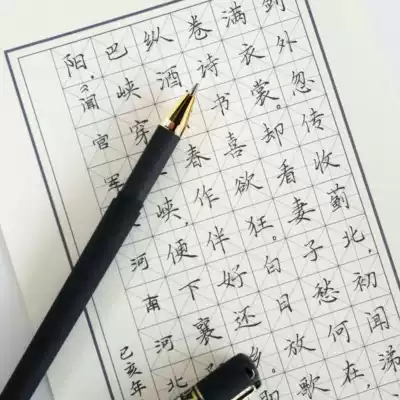 剑外忽传收蓟北,初闻涕
满衣裳。却看妻子愁何在
卷诗书喜欲狂。白日放歌
纵酒春作伴好还乡。
巴峡穿峡,便下襄
阳。
闻官军河南河北
己亥年